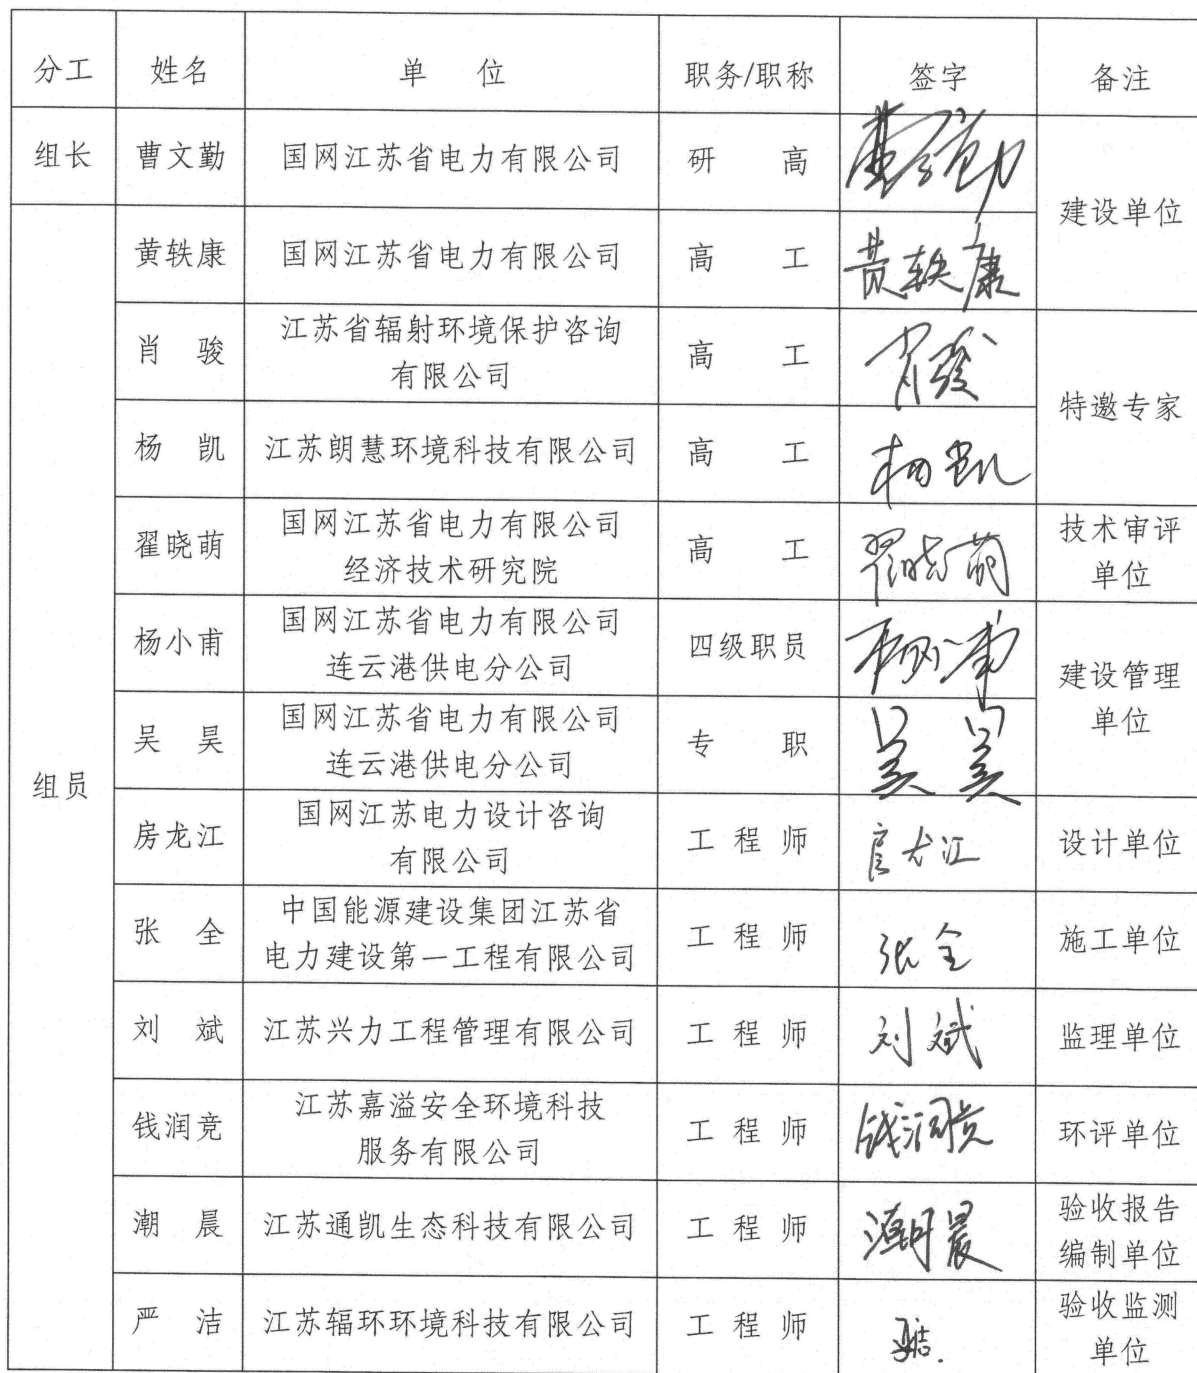 分工 姓名 单位 职务/职称 签字 备注
组长 曹文勤 国网江苏省电力有限公司 研高 曹文勤 建设单位
组员
黄轶康 国网江苏省电力有限公司 高工 黄轶康
肖骏 江苏省辐射环境保护咨询
有限公司 高工 肖骏 特邀专家
杨凯 江苏朗慧环境科技有限公司 高工 杨凯
翟晓萌 国网江苏省电力有限公司
经济技术研究院 高工 翟晓萌 技术审评
单位
杨小甫 国网江苏省电力有限公司
连云港供电分公司 四级职员 杨小甫 建设管理
单位
吴昊 国网江苏省电力有限公司
连云港供电分公司 专职 吴昊
房龙江 国网江苏电力设计咨询
有限公司 工程师 房龙江 设计单位
张全 中国能源建设集团江苏省
电力建设第一工程有限公司 工程师 张全 施工单位
刘斌 江苏兴力工程管理有限公司 工程师 刘斌 监理单位
钱润竞 江苏嘉溢安全环境科技
服务有限公司 工程师 钱润竞 环评单位
潮晨 江苏通凯生态科技有限公司 工程师 潮晨 验收报告
编制单位
严洁 江苏辐环环境科技有限公司 工程师 严洁 验收监测
单位